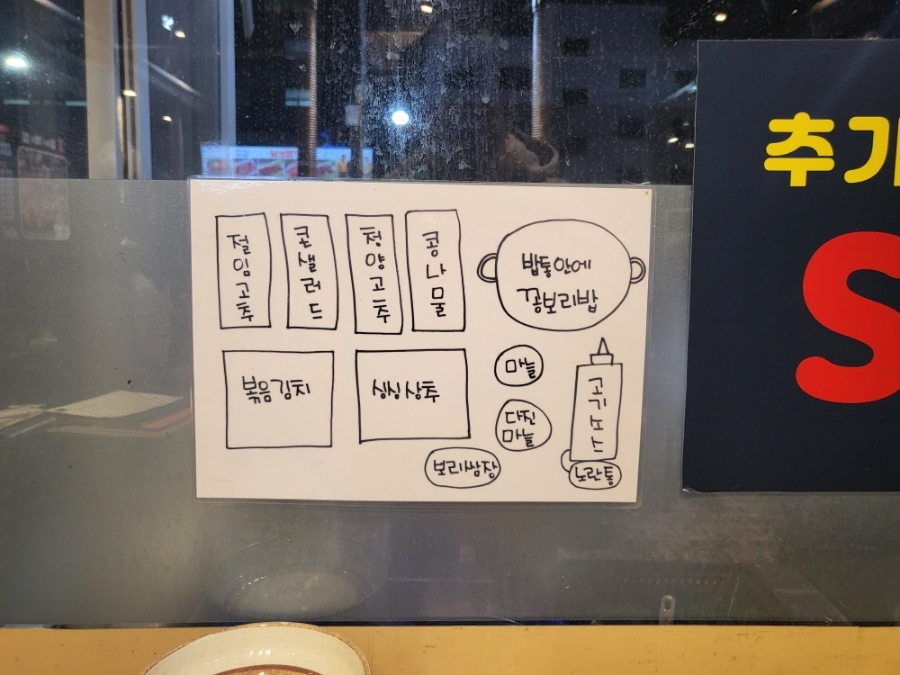 절임고추
콘샐러드
청양고추
콩나물
밥통안에
꽁보리밥
볶음김치
싱싱상추
마늘
다진
마늘
고기소스
보리쌈장
노란통
추가
S